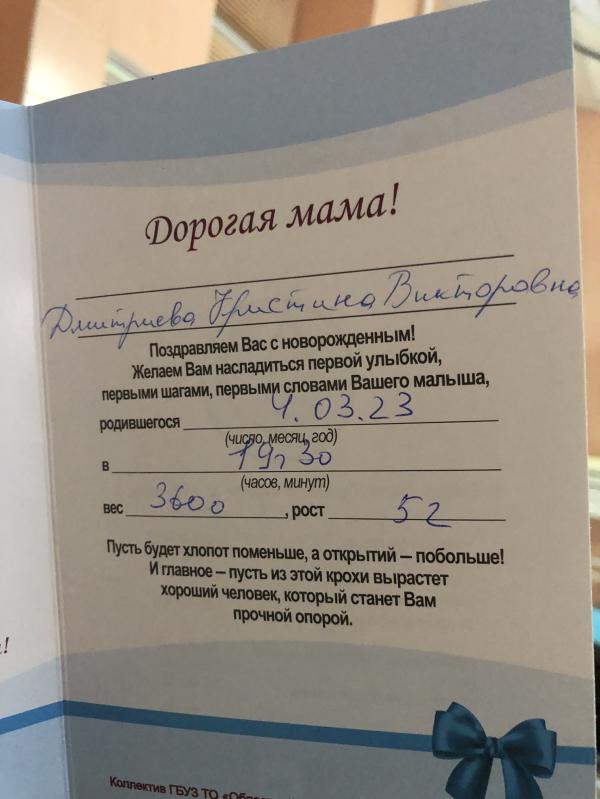 Дорогая мама!
Дмитриева Кристина Викторовна
Поздравляем Вас с новорожденным!
Желаем Вам насладиться первой улыбкой,
первыми шагами, первыми словами Вашего малыша,
родившегося 4.03.23
(число, месяц, год)
в 19ч 30
(часов, минут)
вес 3600, рост 52
Пусть будет хлопот поменьше, а открытий – побольше!
И главное – пусть из этой крохи вырастет
хороший человек, который станет Вам
прочной опорой.
Коллектив ГБУЗ ТО